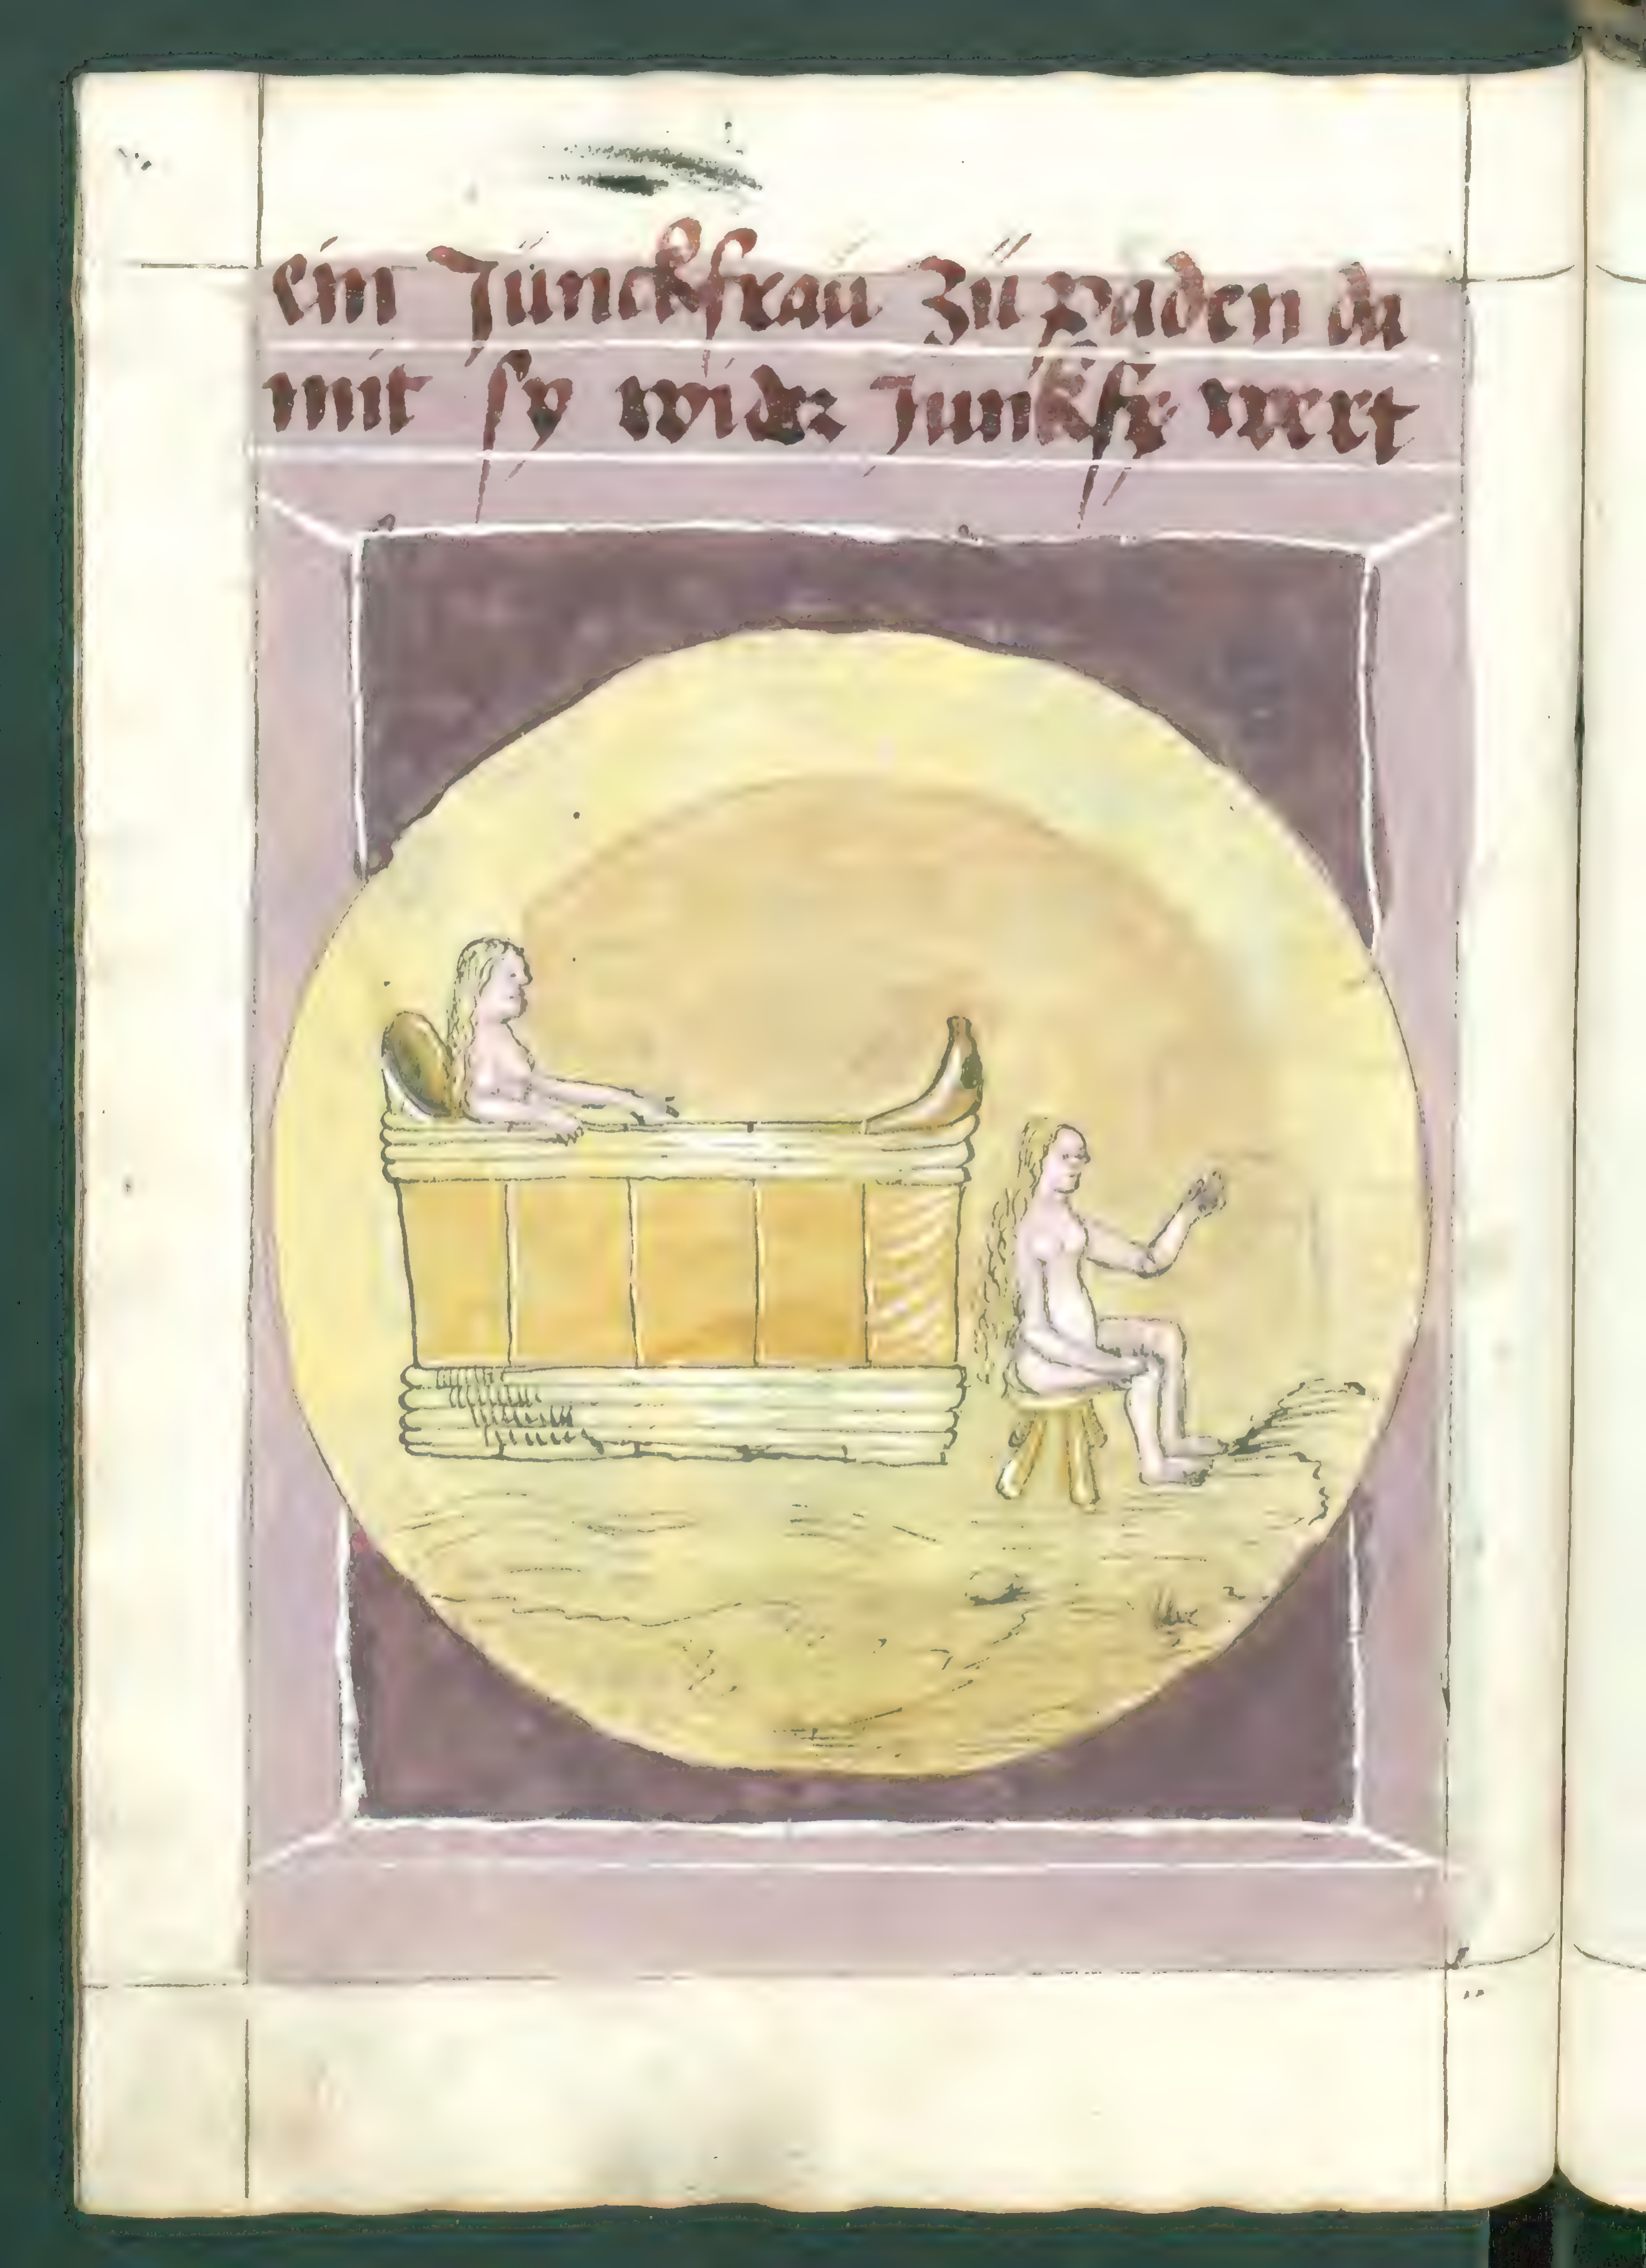 ein Junckfrau zu paden da
mit sy wider Junkfr wert